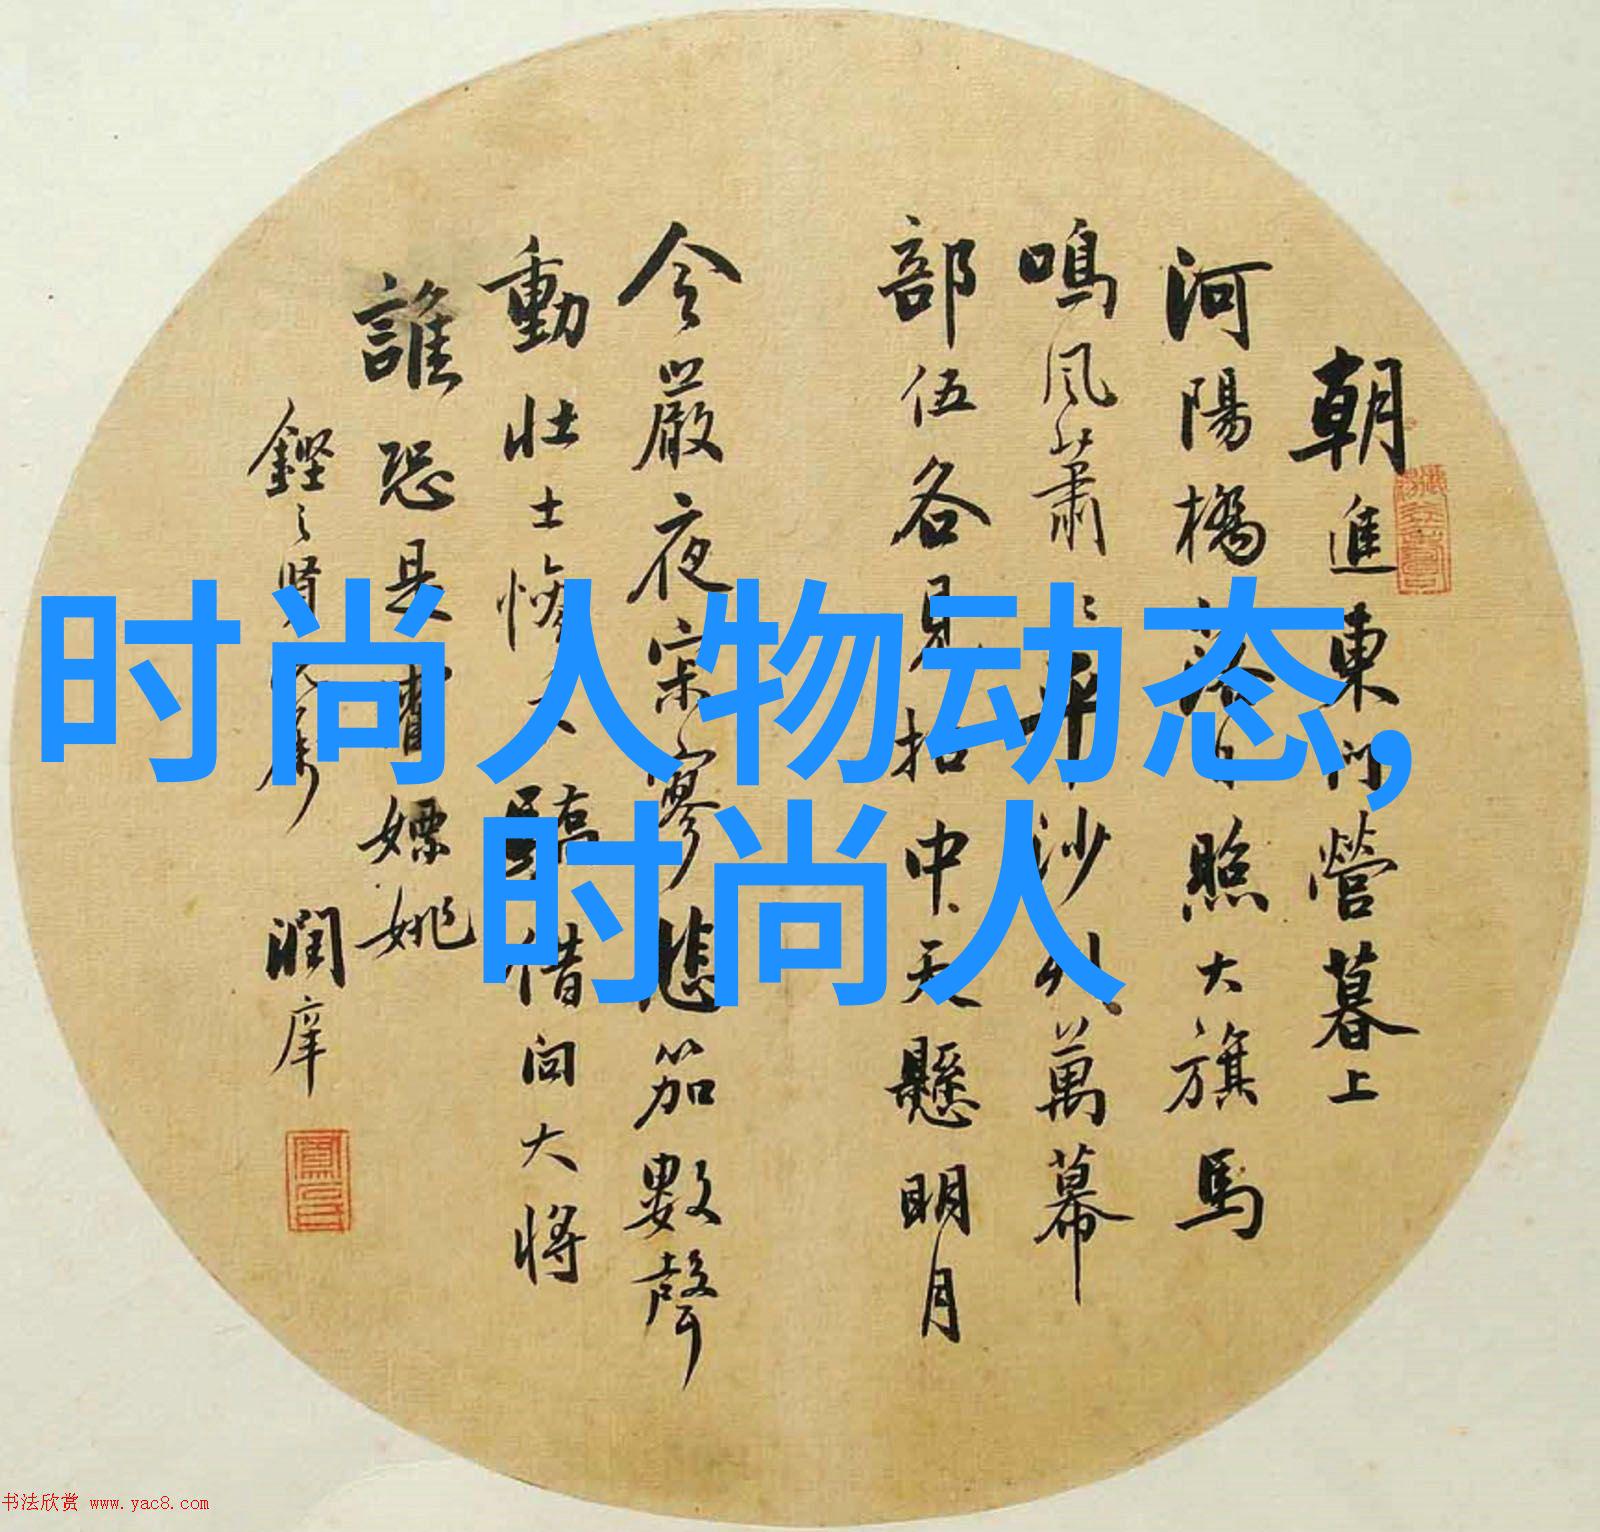 朝進東門營暮上
河陽橋落日照大旗馬
鳴風蕭〻平沙列萬幕
部伍各見招中天懸明月
令嚴夜寂寥悲笳數聲
動壯士慘不驕借問大將
誰恐是霍嫖姚
鏗之賢
潤庠
时尚人物动态,
时尚人
书法欣赏 www.yac8.com